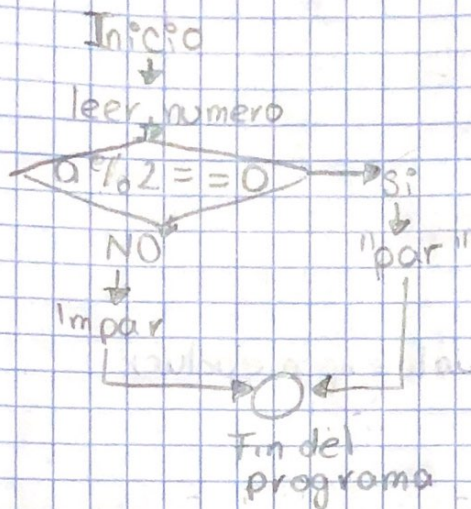 Inicio
leer numero
a % 2 = = 0
Si
NO
"par"
Impar
Fin del
programa